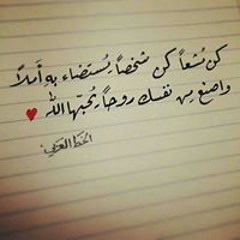 كن مُشعاً كن شخصاً يُستضاء بهِ أملاً
واصنع مِن نفسك روحاً يُحبّها الله
الخط العربي